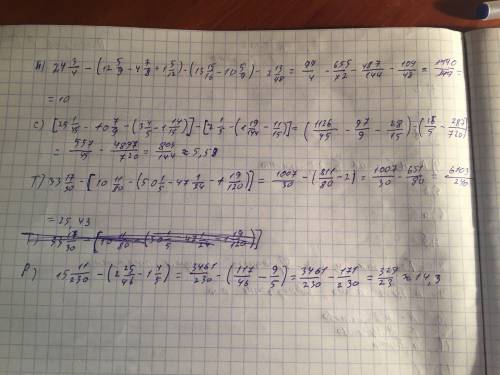 н) 24 3/4 - (12 5/9 - 4 7/8 + 1 5/12) - (13 15/16 - 10 5/9) - 2 13/48 = 99/4 - 655/72 - 487/144 - 109/48 = 1440/144 =
= 10
с) [25 1/45 - 10 7/9 - (3 4/5 - 1 14/15)] - [7 1/5 - (1 19/144 - 11/15)] = (1126/45 - 97/9 - 28/15) - (18/5 - 287/720) =
= 557/45 - 4897/720 = 803/144 ≈ 5,58
Т) 33 17/30 - [10 11/80 - (50 1/5 - 47 1/24 - 1 19/120)] = 1007/30 - (811/80 - 2) = 1007/30 - 651/80 = 6103/240
= 25,43
Р) 15 11/230 - (2 25/46 - 1 4/5) = 3461/230 - (117/46 - 9/5) = 3461/230 - 171/230 = 329/23 ≈ 14,3